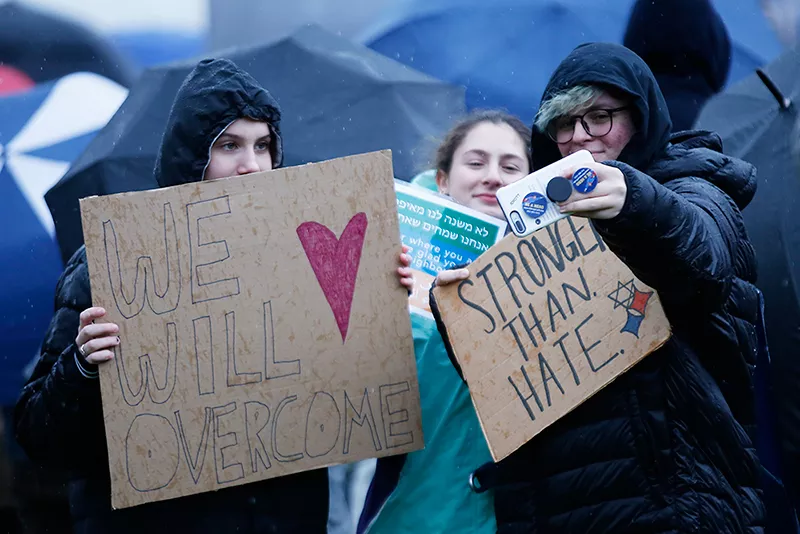 WE
WILL
OVERCOME
לא משנה לנו מאיפה
אנחנו שמחים
where you
glad
STRONGER
THAN.
HATE.